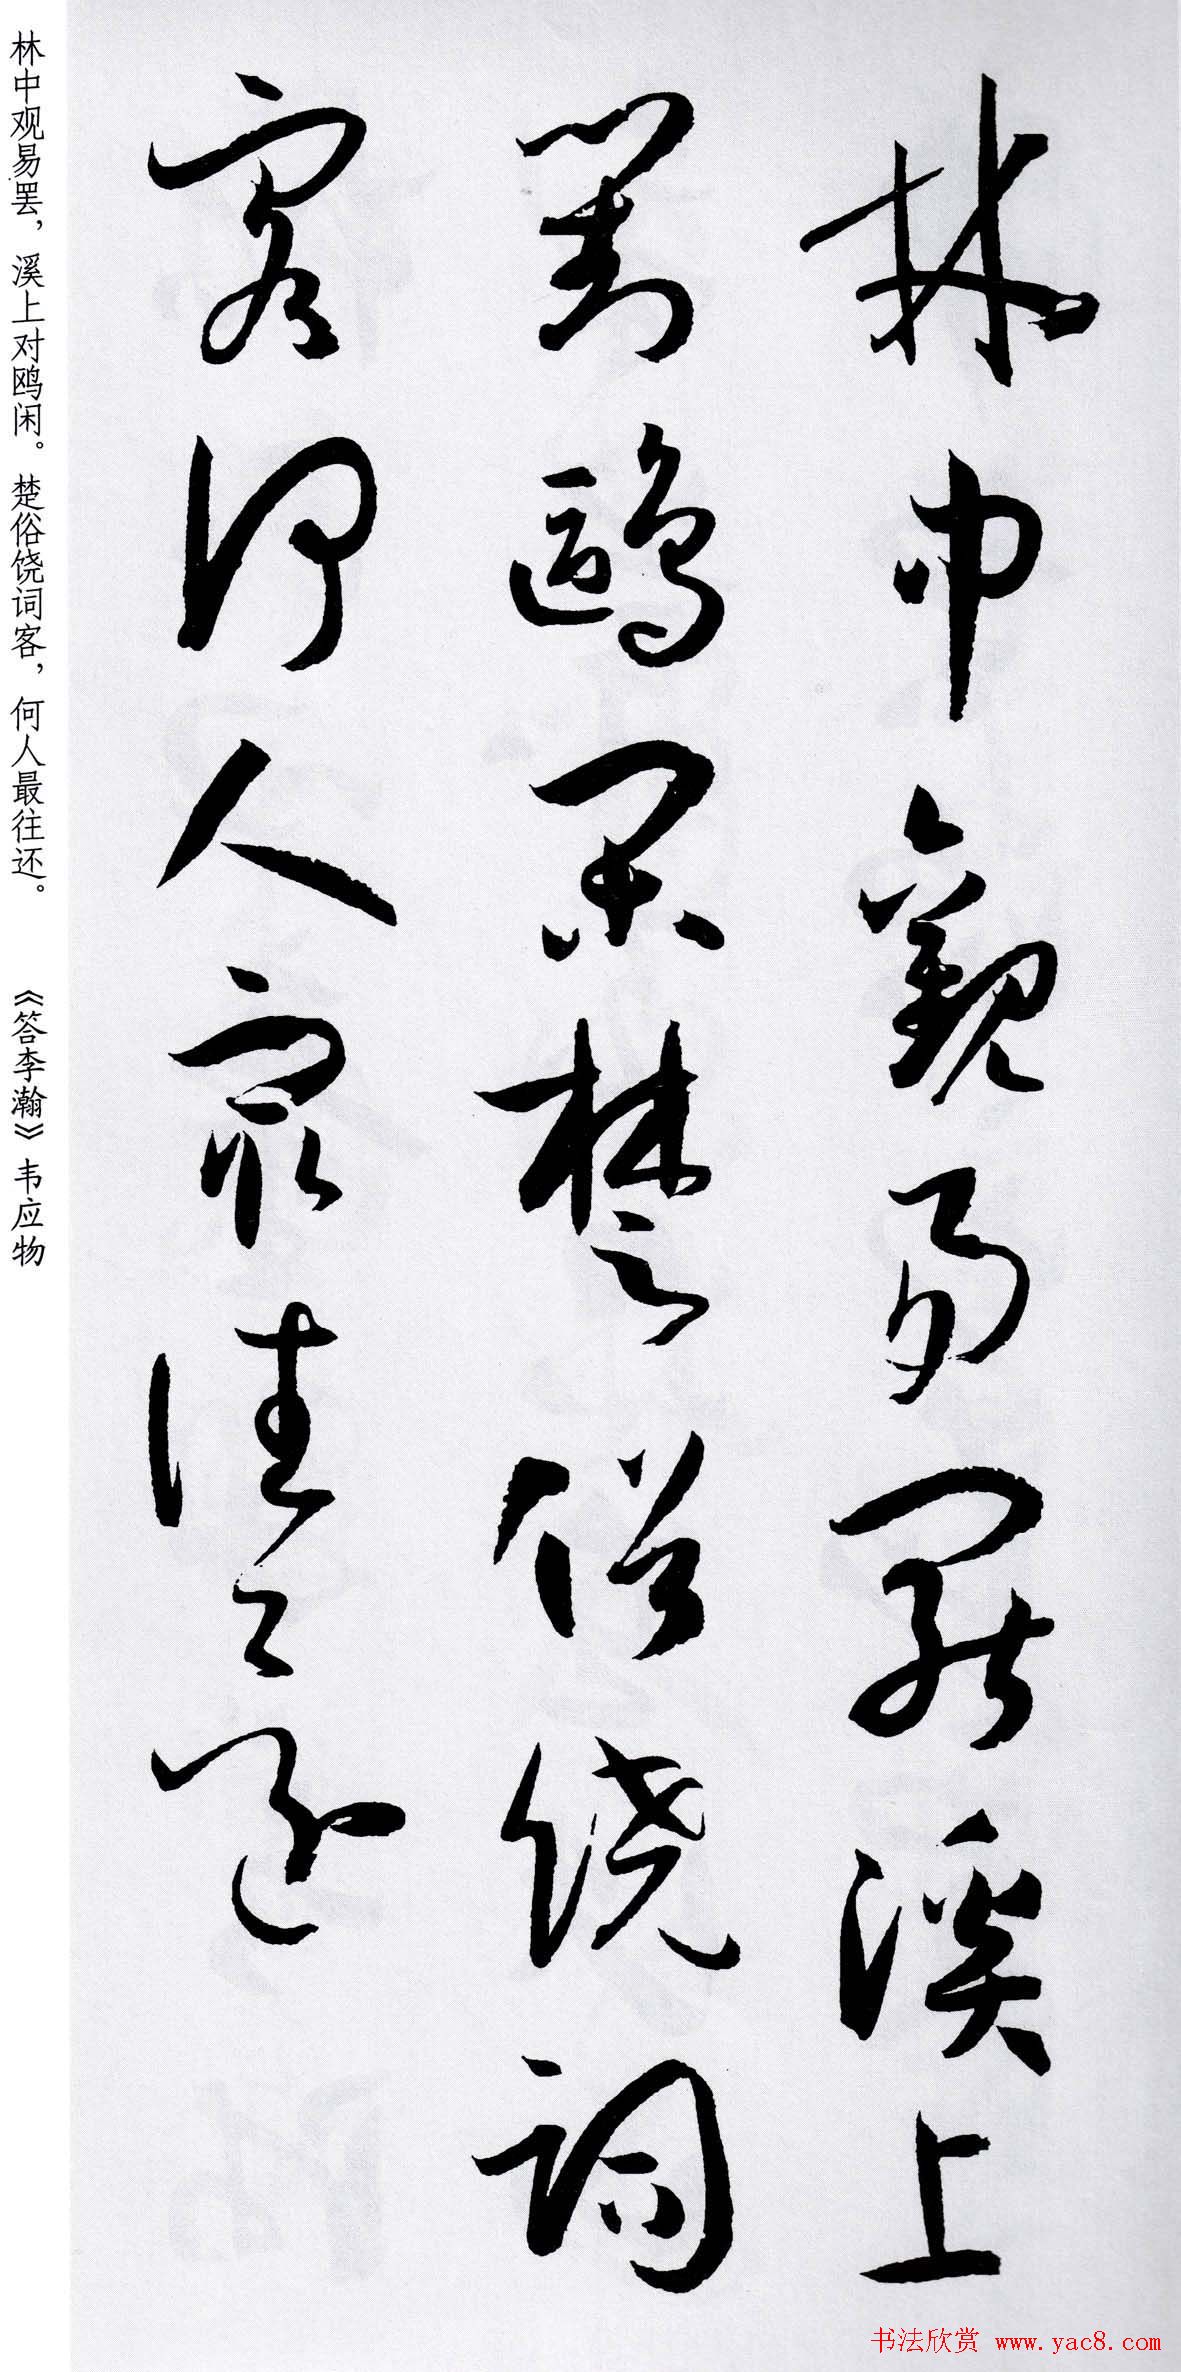 林中觀易罷溪上
對鷗閑楚俗饒詞
客何人最往還
林中观易罢，溪上对鸥闲。楚俗饶词客，何人最往还。 《答李瀚》韦应物
书法欣赏 www.yac8.com